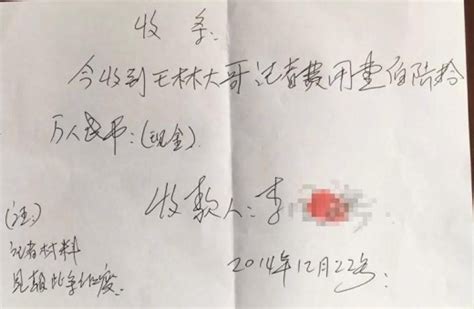 收 条:
今收到王林大哥记者费用壹佰陆拾
万人民币:(现金)
收款人:李
2014年12月22号:
(注:)
记者材料
见报